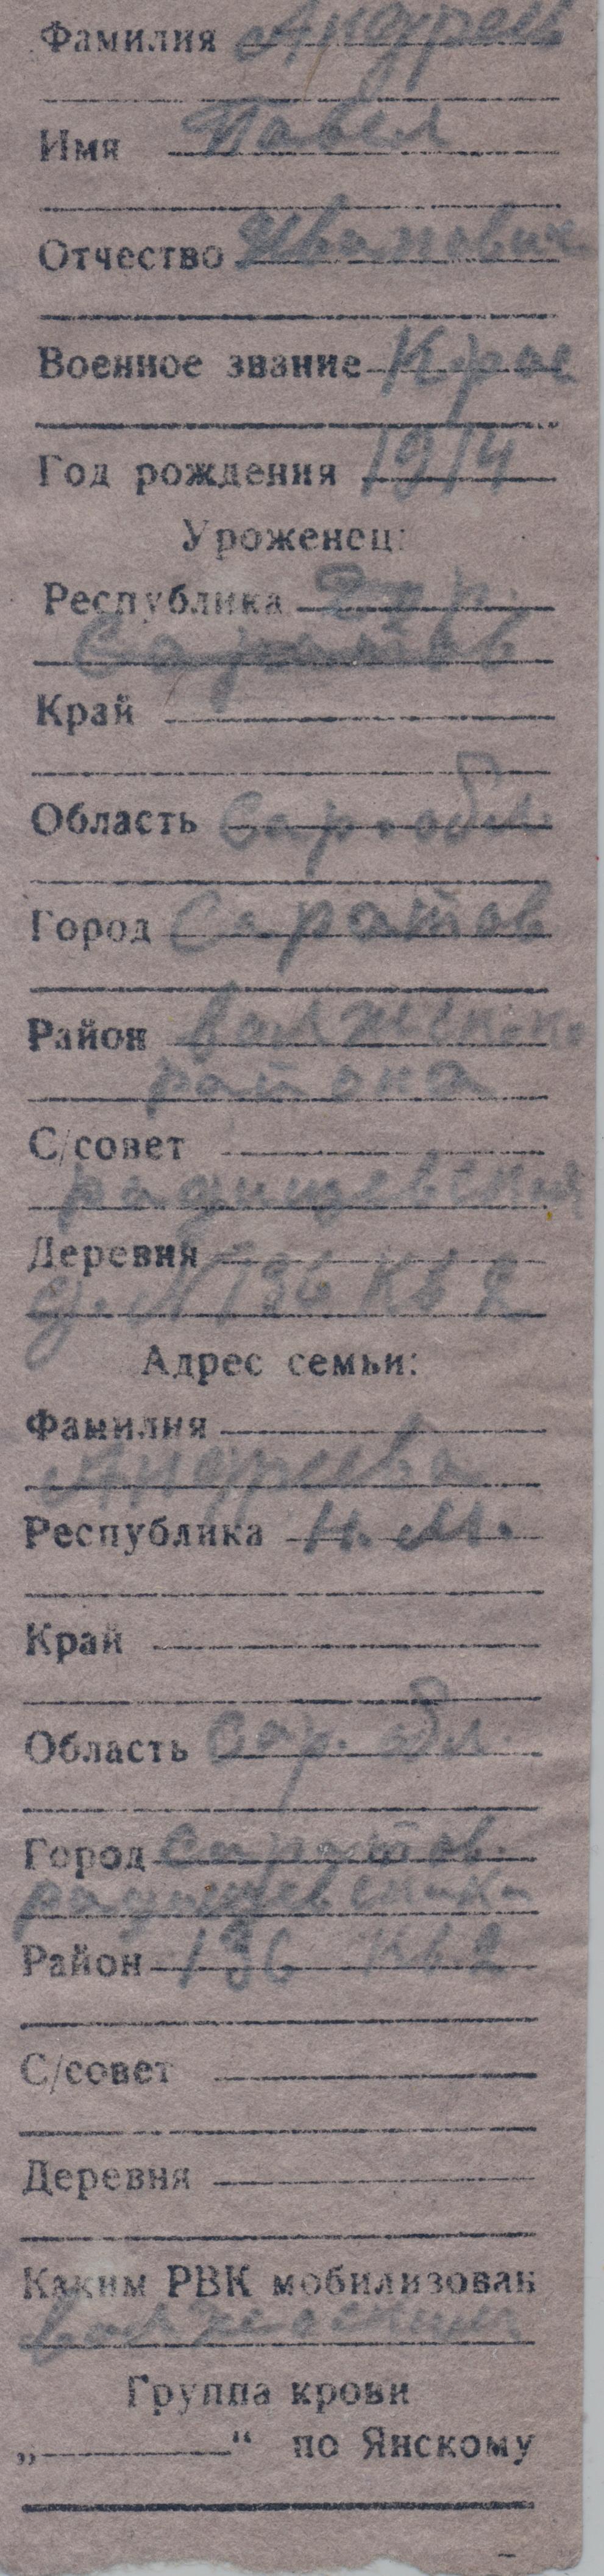 Фамилия Андреев
Имя Павел
Отчество Иванович
Военное звание Крас
Год рождения 1914
Уроженец:
Республика
Саратов
Край
Область Сар. обл.
Город Саратов
Район Волжск
района
С/совет
радищевская
Деревня
д. N 136 кв 2
Адрес семьи:
Фамилия
Андреева
Республика Н. М.
Край
Область Сар. обл
Город Саратов
радищевская
Район 136 кв 2
С/совет
Деревня
Каким РВК мобилизован
Волжским
Группа крови
„ “ по Янскому